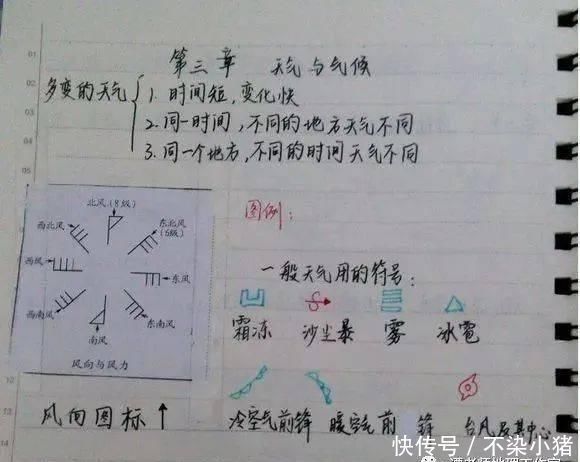 第三章 天气与气候
多变的天气
1. 时间短,变化快
2.同一时间,不同的地方天气不同
3.同一个地方,不同的时间天气不同
北风(8级)
西北风
东北风
(6级)
西风
东风
西南风
东南风
南风
风向与风力
风向图标↑
图例:
一般天气用的符号:
霜冻 沙尘暴 雾 冰雹
冷空气前锋 暖空气前 锋 台风及其中心
快传号/不染小猪
01
02
03
04
05
12
13
14